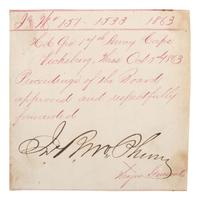 151 - 1533 1863
Hd Qrs 17th Army Corps
Vicksburg, Miss Oct 5th 1863
Proceedings of the Board
approved and respectfully
forwarded
Jas B. McPherson
Major General